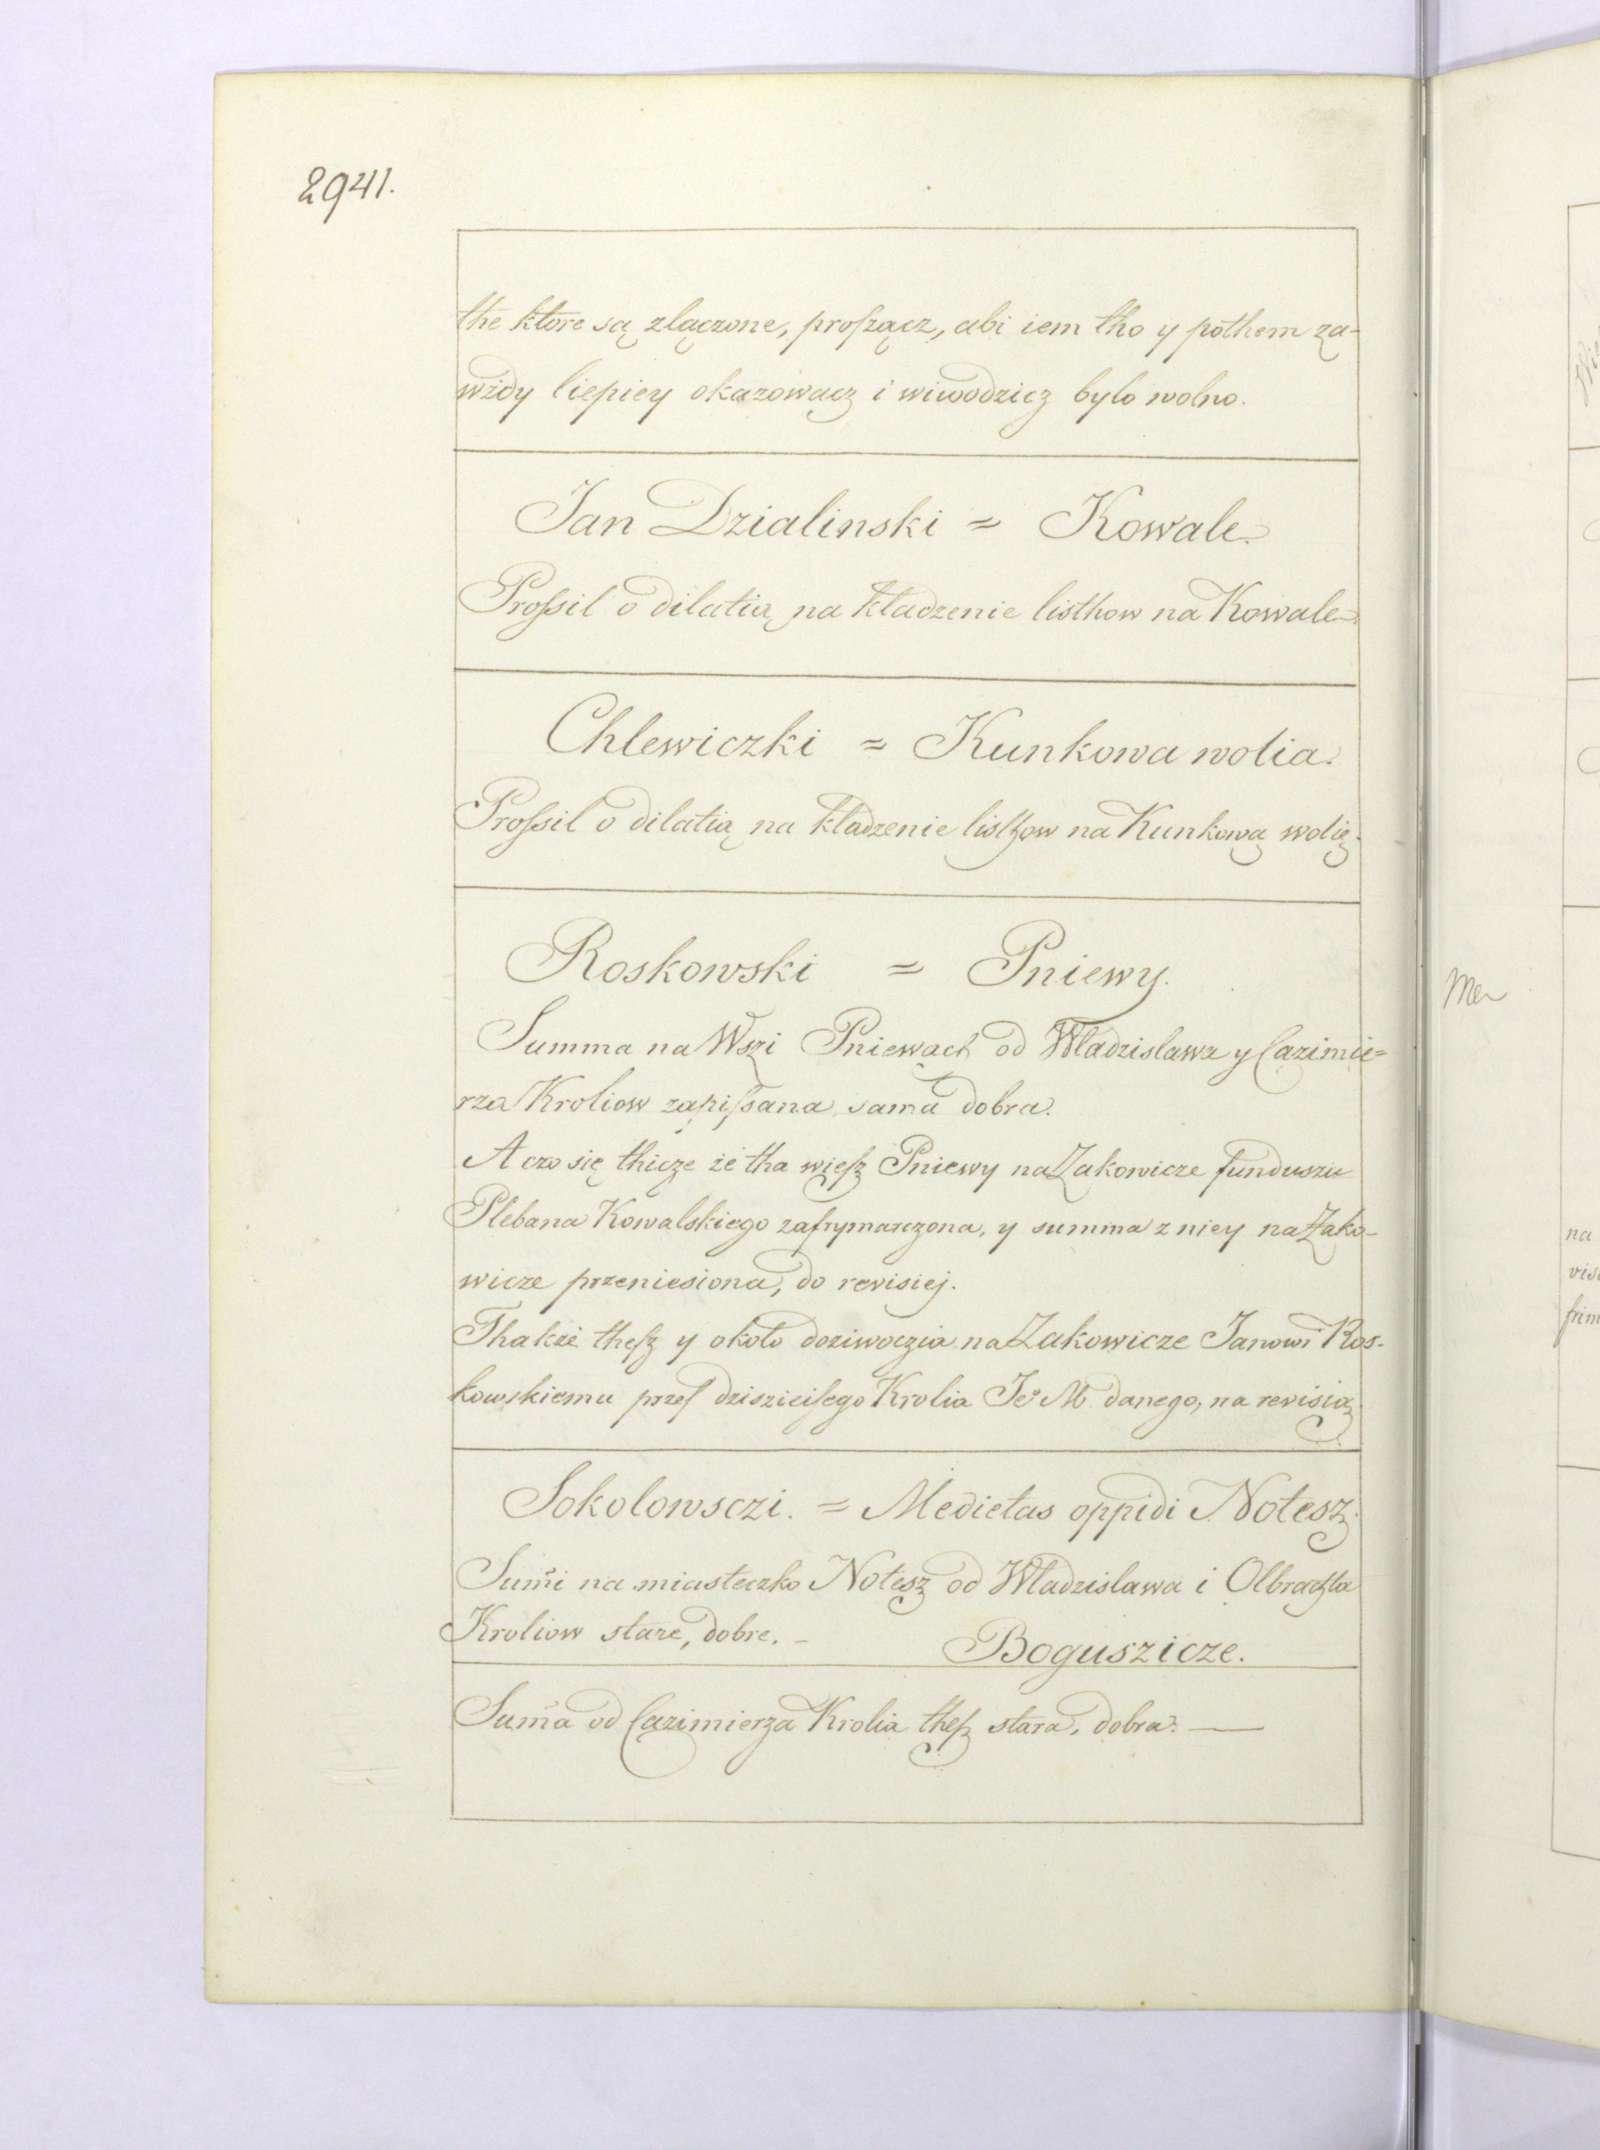 2941.
the ktore są zlączone, proszącz, abi iem tho y pothem za-
wżdy liepiey okazowacz i wiwodzicz bylo wolno.
Jan Dzialinski = Kowale.
Prossil o dilatią na kladzenie listhow na Kowale.
Chlewiczki = Kunkowa wolia.
Prossil o dilatią na kladzenie listhow na Kunkową wolię.
Roskowski = Pniewy.
Summa na Wszi Pniewach od Wladzislawa y Cazimie=
rza Kroliow zapissana sama dobra.
A czo się thicze że tha wiesz Pniewy na Zakowicze funduszu
Plebana Kowalskiego zafrymarczona, y summa z niey na Zako-
wicze przeniesiona, do revisiej.
Thakże thesz y około doziwoczia na Zakowicze Janowi Ros-
kowskiemu przes dziszieisego Krolia Je° M. danego, na revisią.
Sokolowsczi. = Medietas oppidi Notesz.
Sum̃i na miasteczko Notesz od Wladzislawa i Olbrachta
Kroliow stare, dobre. –
Boguszicze.
Sum̃a od Cazimierza Krolia thesz stara, dobra. —
Mer
na
vis
frim